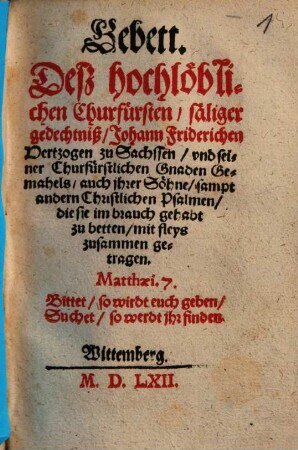 1
Gebett.
Deß hochlöbli-
chen Churfürsten / säliger
gedechtniß / Johann Friderichen
Hertzogen zu Sachssen / vnd sei-
ner Churfürstlichen Gnaden Ge-
mahels / auch jhrer Söhne / sampt
andern Christlichen Psalmen /
die sie im brauch gehabt
zu betten / mit fleys
zusammen ge-
tragen.
Matthæi. 7.
Bittet / so wirdt euch geben /
Suchet / so werdt jhr finden.
Wittemberg.
M. D. LXII.